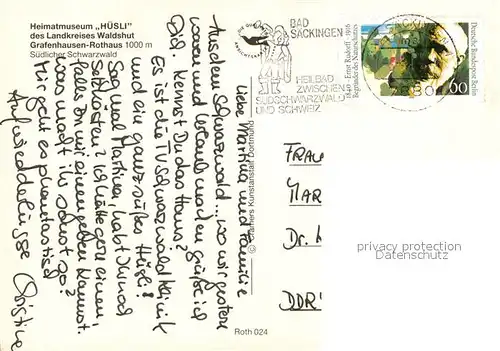 Heimatmuseum „HÜSLI"
des Landkreises Waldshut
Grafenhausen-Rothaus 1000 m
Südlicher Schwarzwald
BAD
SÄCKINGEN
HEILBAD
ZWISCHEN
SÜDSCHWARZWALD
UND SCHWEIZ
1840 · Ernst Rudorff · 1916
Begründer des Naturschutzes
Deutsche Bundespost Berlin
Liebe Martina und Familie
Aus dem Schwarzwald, wo wir gestern
waren und Urlaub machen grüße ich
Dich. Kennst Du das Haus?
Es ist die TV Schwarzwaldklinik
und ein ganz süßes Hüsli!
Sag mal Martina, habt Ihr noch
Setzkästen? Ich hätte gern einen
falls Du mir einen geben kannst.
Was macht ihr sonst so?
Mir geht es phantastisch
Auf wiedersehen Christine
© Cramers Kunstanstalt Dortmund
Roth 024
FRAU
MAR
Dr.
DDR
privacy protection
Datenschutz